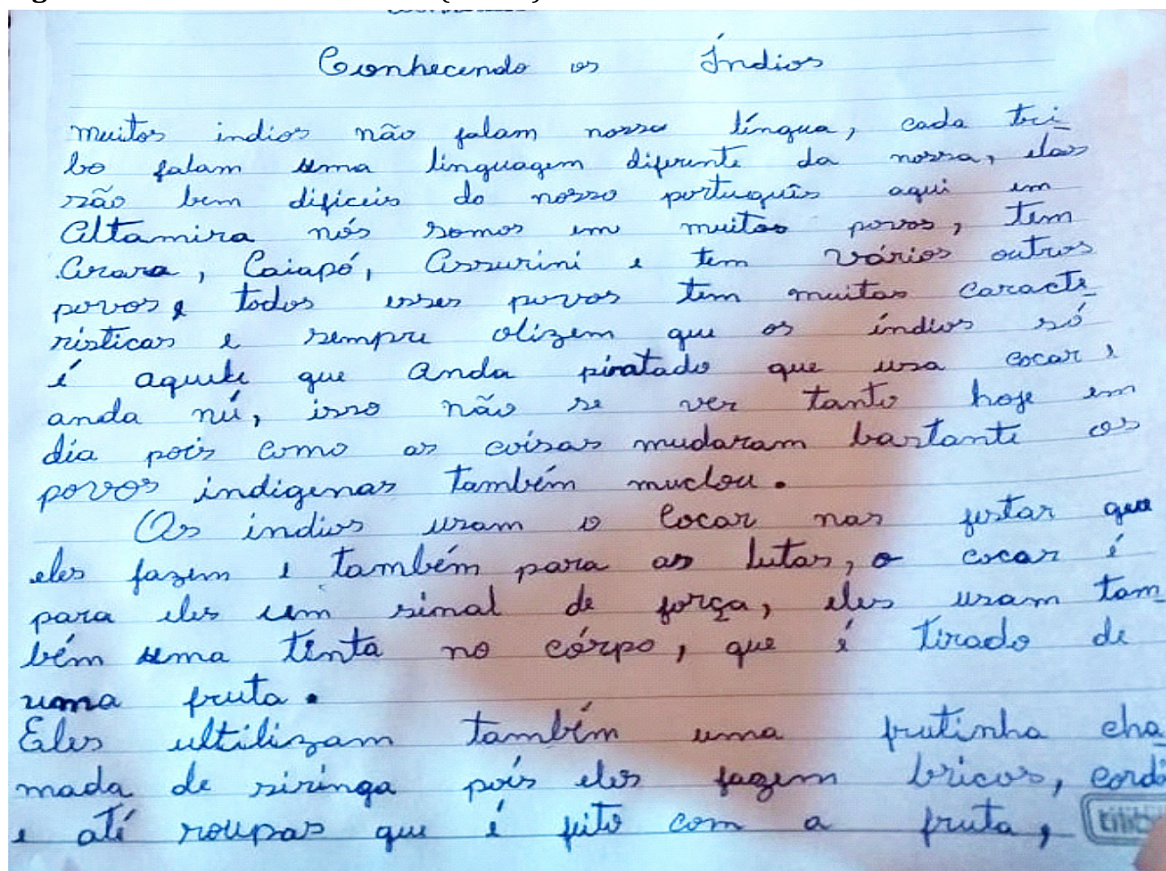 Conhecendo os Índios
muitos indios não falam nossa língua, cada tri
bo falam uma linguagem diferente da nossa, elas
são bem dificeis do nosso português aqui em
Altamira nós somos em muitos povos, tem
Arara, Caiapó, Assurini e tem vários outros
povos e todos esses povos tem muitas caracte_
risticas e sempre dizem que os índios só
é aquele que anda pintado que usa cocar e
anda nú, isso não se ver tanto hoje em
dia pois como as coisas mudaram bastante os
povos indigenas também mudou.
Os índios usam o cocar nas festas que
eles fazem e também para as lutas, o cocar é
para eles um sinal de força, eles usam tam_
bém uma tinta no córpo, que é tirado de
uma fruta.
Eles ultilizam também uma frutinha cha_
mada de siringa pois eles fazem bricos, cordã
e até roupas que é feito com a fruta,